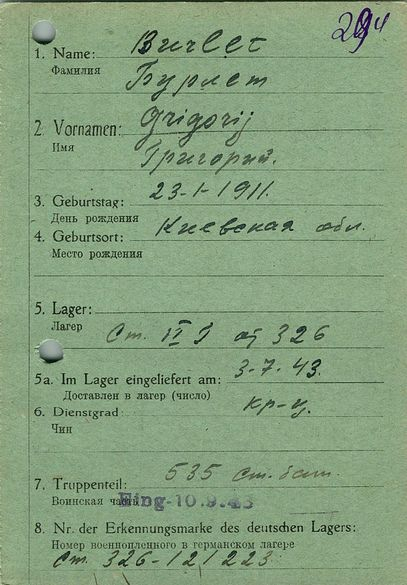 294
1. Name: Burlet
Фамилия Бурлет
2. Vornamen: Grigorij
Имя Григорий.
3. Geburtstag: 23-1-1911.
День рождения
4. Geburtsort: Киевская обл.
Место рождения
5. Lager:
Лагерь
Ст. 326
5a. Im Lager eingeliefert am: 3-7-43.
Доставлен в лагерь (число)
6. Dienstgrad: кр-ц.
Чин
7. Truppenteil: 535 ст. бат.
Воинская часть
Eing-10.9.43
8. Nr. der Erkennungsmarke des deutschen Lagers:
Номер военнопленного в германском лагере
Ст. 326-121223